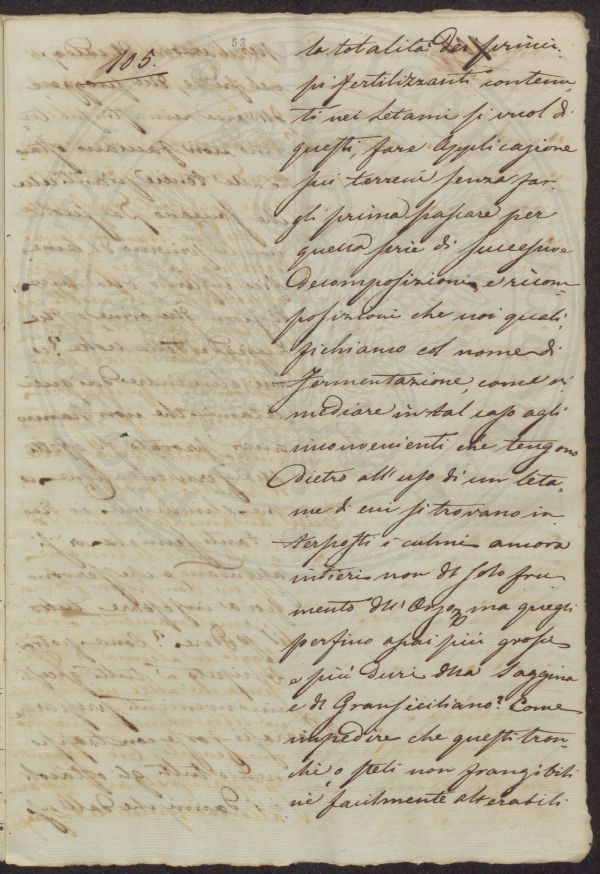 53
105.
la totalità dei princi-
pj fertilizzanti contenu-
ti nei letami si vuol di
questi, fare applicazione
sui terreni senza far-
gli prima passare per
quella serie di successive
decomposizioni e ricom-
posizioni che noi quali-
fichiamo col nome di
Fermentazione, come ri-
mediare in tal caso agli
inconvenienti che tengono
dietro all'uso di un leta-
me di cui si trovano in-
terposti i culmi ancora
intieri non di solo fru-
mento dll' Orzo, ma quegli
perfino assai più grossi
e più duri dlla Saggina
e dl Gransiciliano? Come
impedire che questi tron-
chi, o steli non frangibili
nè facilmente alterabili